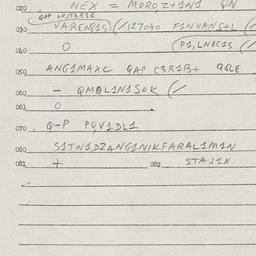 020 NEX = MOROZ+1N1 QN
QAP LOJTBR3R
030 VARENQ1S)(/127040 F1NVANS+L (/
040 O (P1,LN0C1S (/
050 ANG1MAXC QAP C3R1B+ 96LE
060 - QMQL1N1SOK (/
061 O
070 Q-P PQV1DL1
080 S1TN1DZANG1N1KFARAL1M1N
081 + 082 STAJ1N